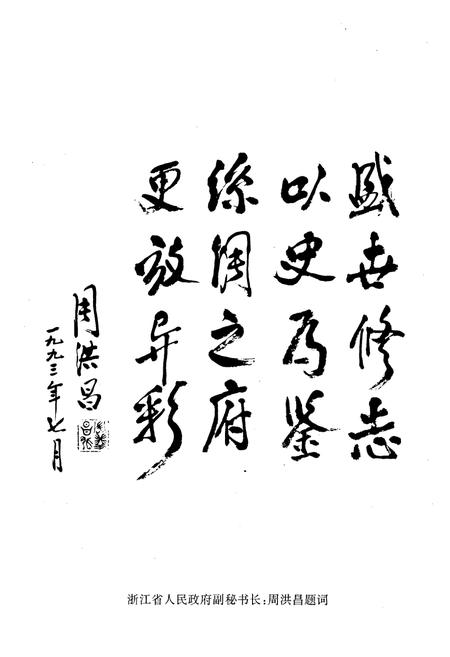 盛世修志
以史为鉴
丝绸之府
更放异彩
周洪昌
一九九三年七月
浙江省人民政府副秘书长：周洪昌题词